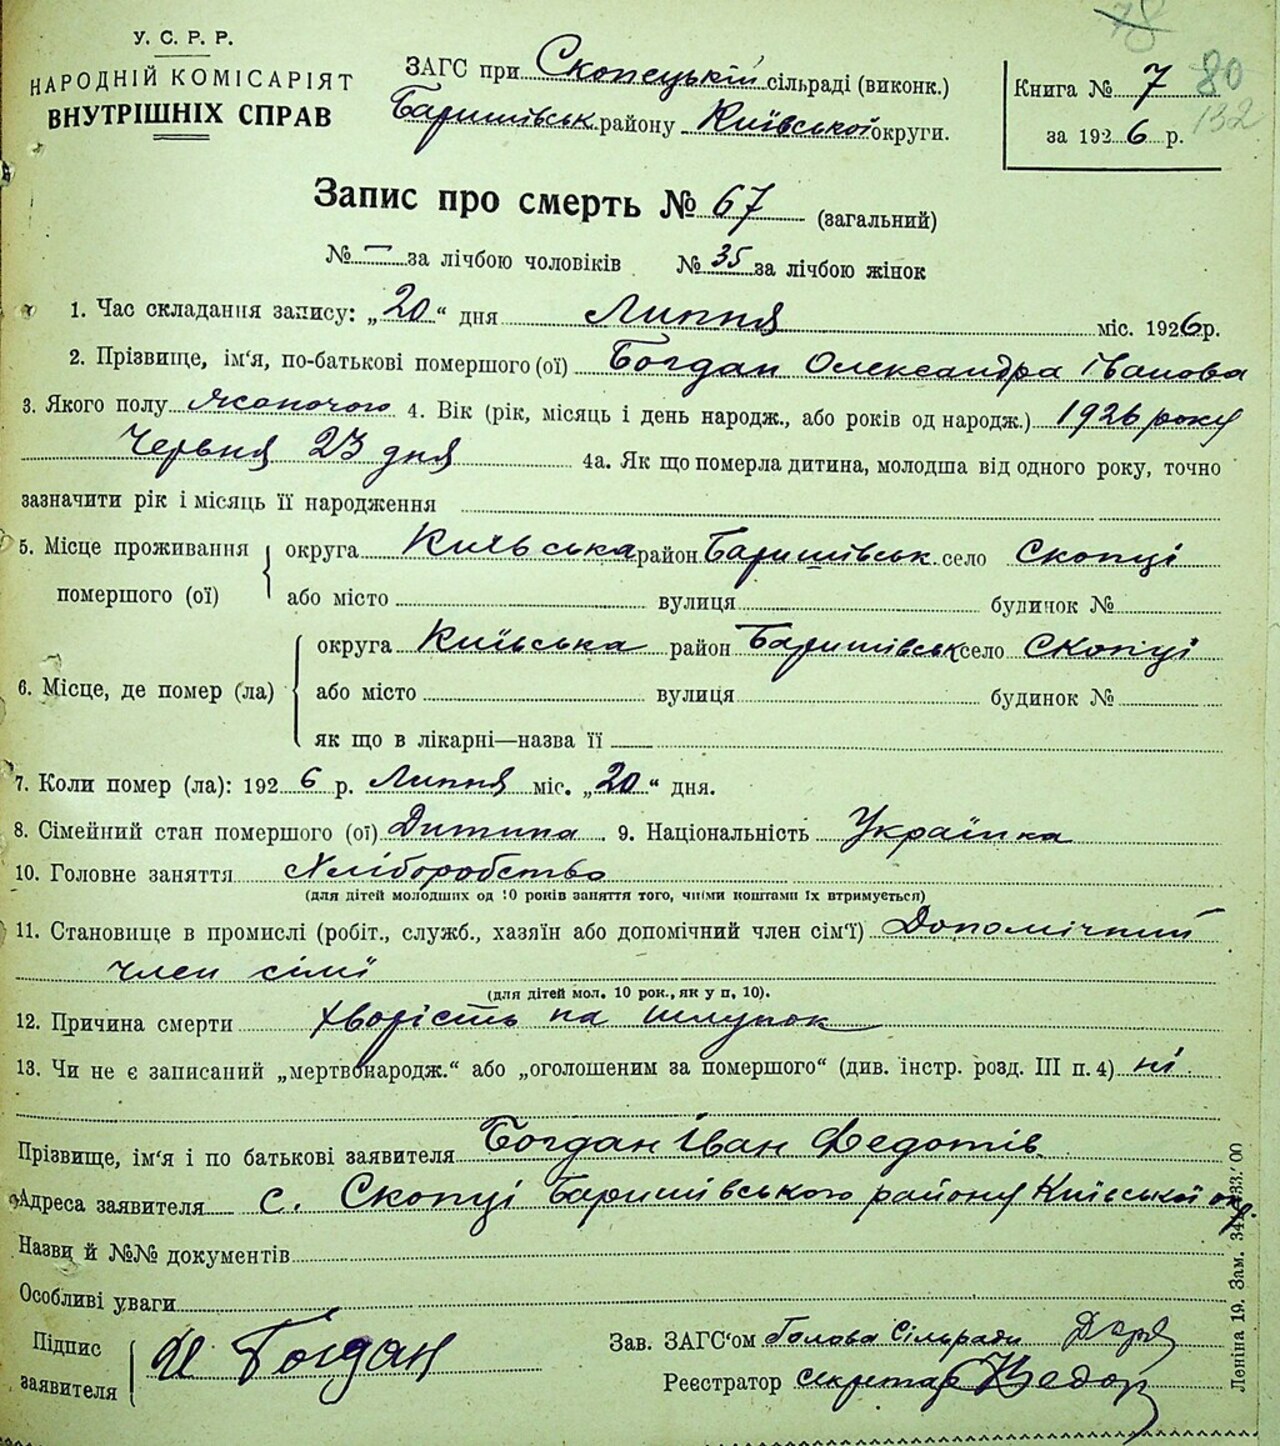 У. С. Р. Р.
НАРОДНІЙ КОМІСАРІЯТ
ВНУТРІШНІХ СПРАВ
ЗАГС при Скопецькій сільраді (виконк.)
Баришівськ. району Київської округи.
Книга № 7
за 1926 р.
78
80
132
Запис про смерть № 67 (загальний)
№ — за лічбою чоловіків № 35 за лічбою жінок
1. Час складання запису: „20“ дня Липня міс. 1926 р.
2. Прізвище, ім‘я, по-батькові помершого (ої) Богдан Олександра Іванова
3. Якого полу жоночого 4. Вік (рік, місяць і день народж., або років од народж.) 1926 року
Червня 23 дня 4а. Як що померла дитина, молодша від одного року, точно
зазначити рік і місяць її народження
5. Місце проживання помершого (ої) округа Київська район Баришівськ. село Скопці
або місто вулиця будинок №
6. Місце, де помер (ла) округа Київська район Баришівськ село Скопці
або місто вулиця будинок №
як що в лікарні—назва її
7. Коли помер (ла): 1926 р. Липня міс. „20“ дня.
8. Сімейний стан помершого (ої) Дитина 9. Національність Українка
10. Головне заняття Хліборобство
(для дітей молодших од 10 років заняття того, чиїми коштами їх втримується)
11. Становище в промислі (робіт., служб., хазяїн або допомічний член сім‘ї) Допомічний
член сімї
(для дітей мол. 10 рок., як у п, 10).
12. Причина смерти хворість на шлунок
13. Чи не є записаний „мертвонародж.“ або „оголошеним за помершого“ (див. інстр. розд. III п. 4) ні
Прізвище, ім‘я і по батькові заявителя Богдан Іван Федотів
Адреса заявителя с. Скопці Баришівського району Київської окр.
Назви й №№ документів
Особливі уваги
Підпис заявителя И Богдан
Зав. ЗАГС‘ом Голова Сільради
Реєстратор секретар
Леніна 19. Зам.